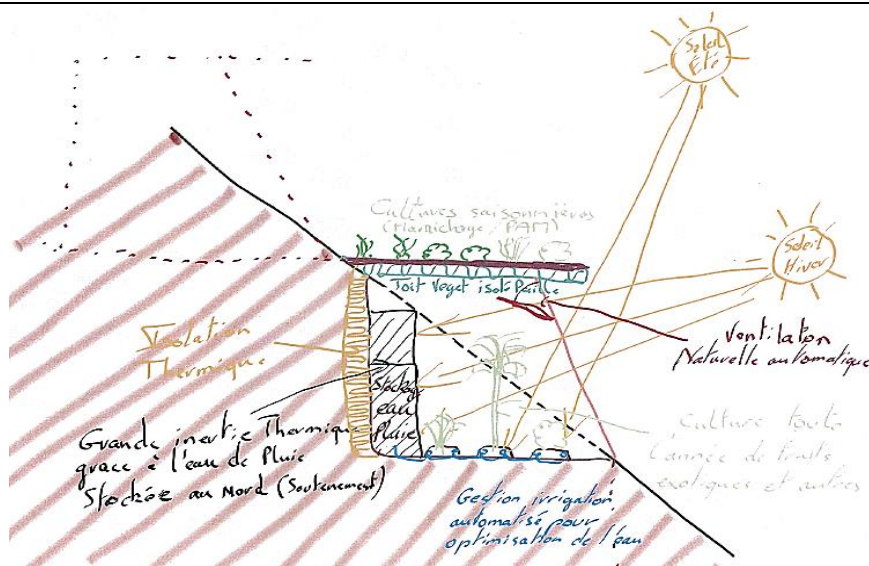 Soleil
Été
Cultures saisonnières
(Maraichage / PAM)
Soleil
Hiver
Toit Veget isolé Paille
Isolation
Thermique
Ventilation
Naturelle automatique
Stockage
eau
Pluie
Grande inertie Thermique
grace à l'eau de Pluie
Stockée au Nord (Soutenement)
Culture toute
l'année de fruits
exotiques et autres
Gestion irrigation
automatisé pour
optimisation de l'eau